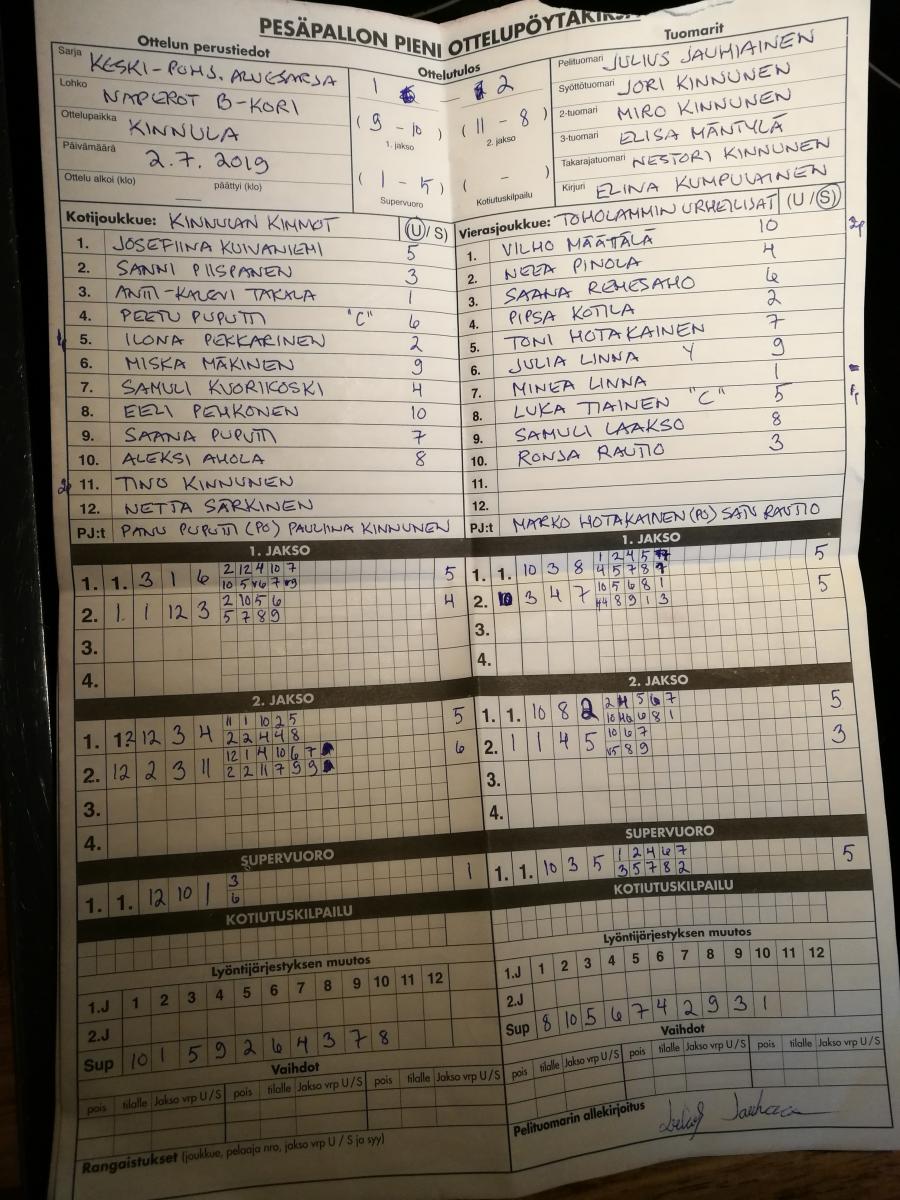 PESÄPALLON PIENI OTTELUPÖYTÄKIRJA
Ottelun perustiedot
Sarja KESKI-POHJ. ALUESARJA
Lohko NAPEROT B-KORI
Ottelupaikka KINNULA
Päivämäärä 2.7. 2019
Ottelu alkoi (klo) päättyi (klo)
Ottelutulos
1 — 2
( 9 - 10 ) ( 11 - 8 )
1. jakso 2. jakso
( 1 - 5 ) ( - )
Supervuoro Kotiutuskilpailu
Tuomarit
Pelituomari JULIUS JAUHIAINEN
Syöttötuomari JORI KINNUNEN
2-tuomari MIRO KINNUNEN
3-tuomari ELISA MÄNTYLÄ
Takarajatuomari NESTORI KINNUNEN
Kirjuri ELINA KUMPULAINEN
Kotijoukkue: KINNULAN KIMMOT (U/S)
1. JOSEFIINA KUIVANIEMI 5
2. SANNI PIISPANEN 3
3. ANTTI-KALEVI TAKALA 1
4. PEETU PUPUTTI "C" 6
5. ILONA PEKKARINEN 2
6. MISKA MÄKINEN 9
7. SAMULI KUORIKOSKI 4
8. EELI PEHKONEN 10
9. SAANA PUPUTTI 7
10. ALEKSI AHOLA 8
11. TINO KINNUNEN
12. NETTA SÄRKINEN
PJ:t PANU PUPUTTI (PO) PAULIINA KINNUNEN
Vierasjoukkue: TOHOLAMMIN URHEILIJAT (U/S)
1. VILHO MÄÄTTÄLÄ 10
2. NEEA PINOLA 4
3. SAANA REMESAHO 6
4. PIPSA KOTILA 2
5. TONI HOTAKAINEN 7
6. JULIA LINNA Y 9
7. MINEA LINNA 1
8. LUKA TIAINEN "C" 5
9. SAMULI LAAKSO 8
10. RONJA RAUTIO 3
11.
12.
PJ:t MARKO HOTAKAINEN (PO) SATU RAUTIO
1. JAKSO
1. 1. 3 1 6 2 12 4 10 7 5
2. 1. 1 12 3 2 10 5 6 4
5 7 8 9
3.
4.
1. JAKSO
1. 1. 10 3 8 1 2 4 5 5
4 5 7 8
2. 3 4 7 10 5 6 8 1 5
8 9 1 3
3.
4.
2. JAKSO
1. 12 12 3 4 11 1 10 2 5 5
2 2 4 4 8
2. 12 2 3 11 12 1 4 10 6 7 6
2 2 11 7 9 9
3.
4.
2. JAKSO
1. 1. 10 8 2 5
2. 1 1 4 5 10 6 7 3
8 9
3.
4.
SUPERVUORO
1. 1. 12 10 1 3 1
6
SUPERVUORO
1. 1. 10 3 5 1 2 4 6 7 5
3 5 7 8 2
KOTIUTUSKILPAILU
KOTIUTUSKILPAILU
Lyöntijärjestyksen muutos
1.J 1 2 3 4 5 6 7 8 9 10 11 12
2.J
Sup 10 1 5 9 2 6 4 3 7 8
Lyöntijärjestyksen muutos
1.J 1 2 3 4 5 6 7 8 9 10 11 12
2.J
Sup 8 10 5 6 7 4 2 9 3 1
Vaihdot
pois tilalle Jakso vrp U/S pois tilalle Jakso vrp U/S pois tilalle Jakso vrp U/S
Vaihdot
pois tilalle Jakso vrp U/S pois tilalle Jakso vrp U/S pois tilalle Jakso vrp U/S
Rangaistukset (joukkue, pelaaja nro, jakso vrp U / S ja syy)
Pelituomarin allekirjoitus